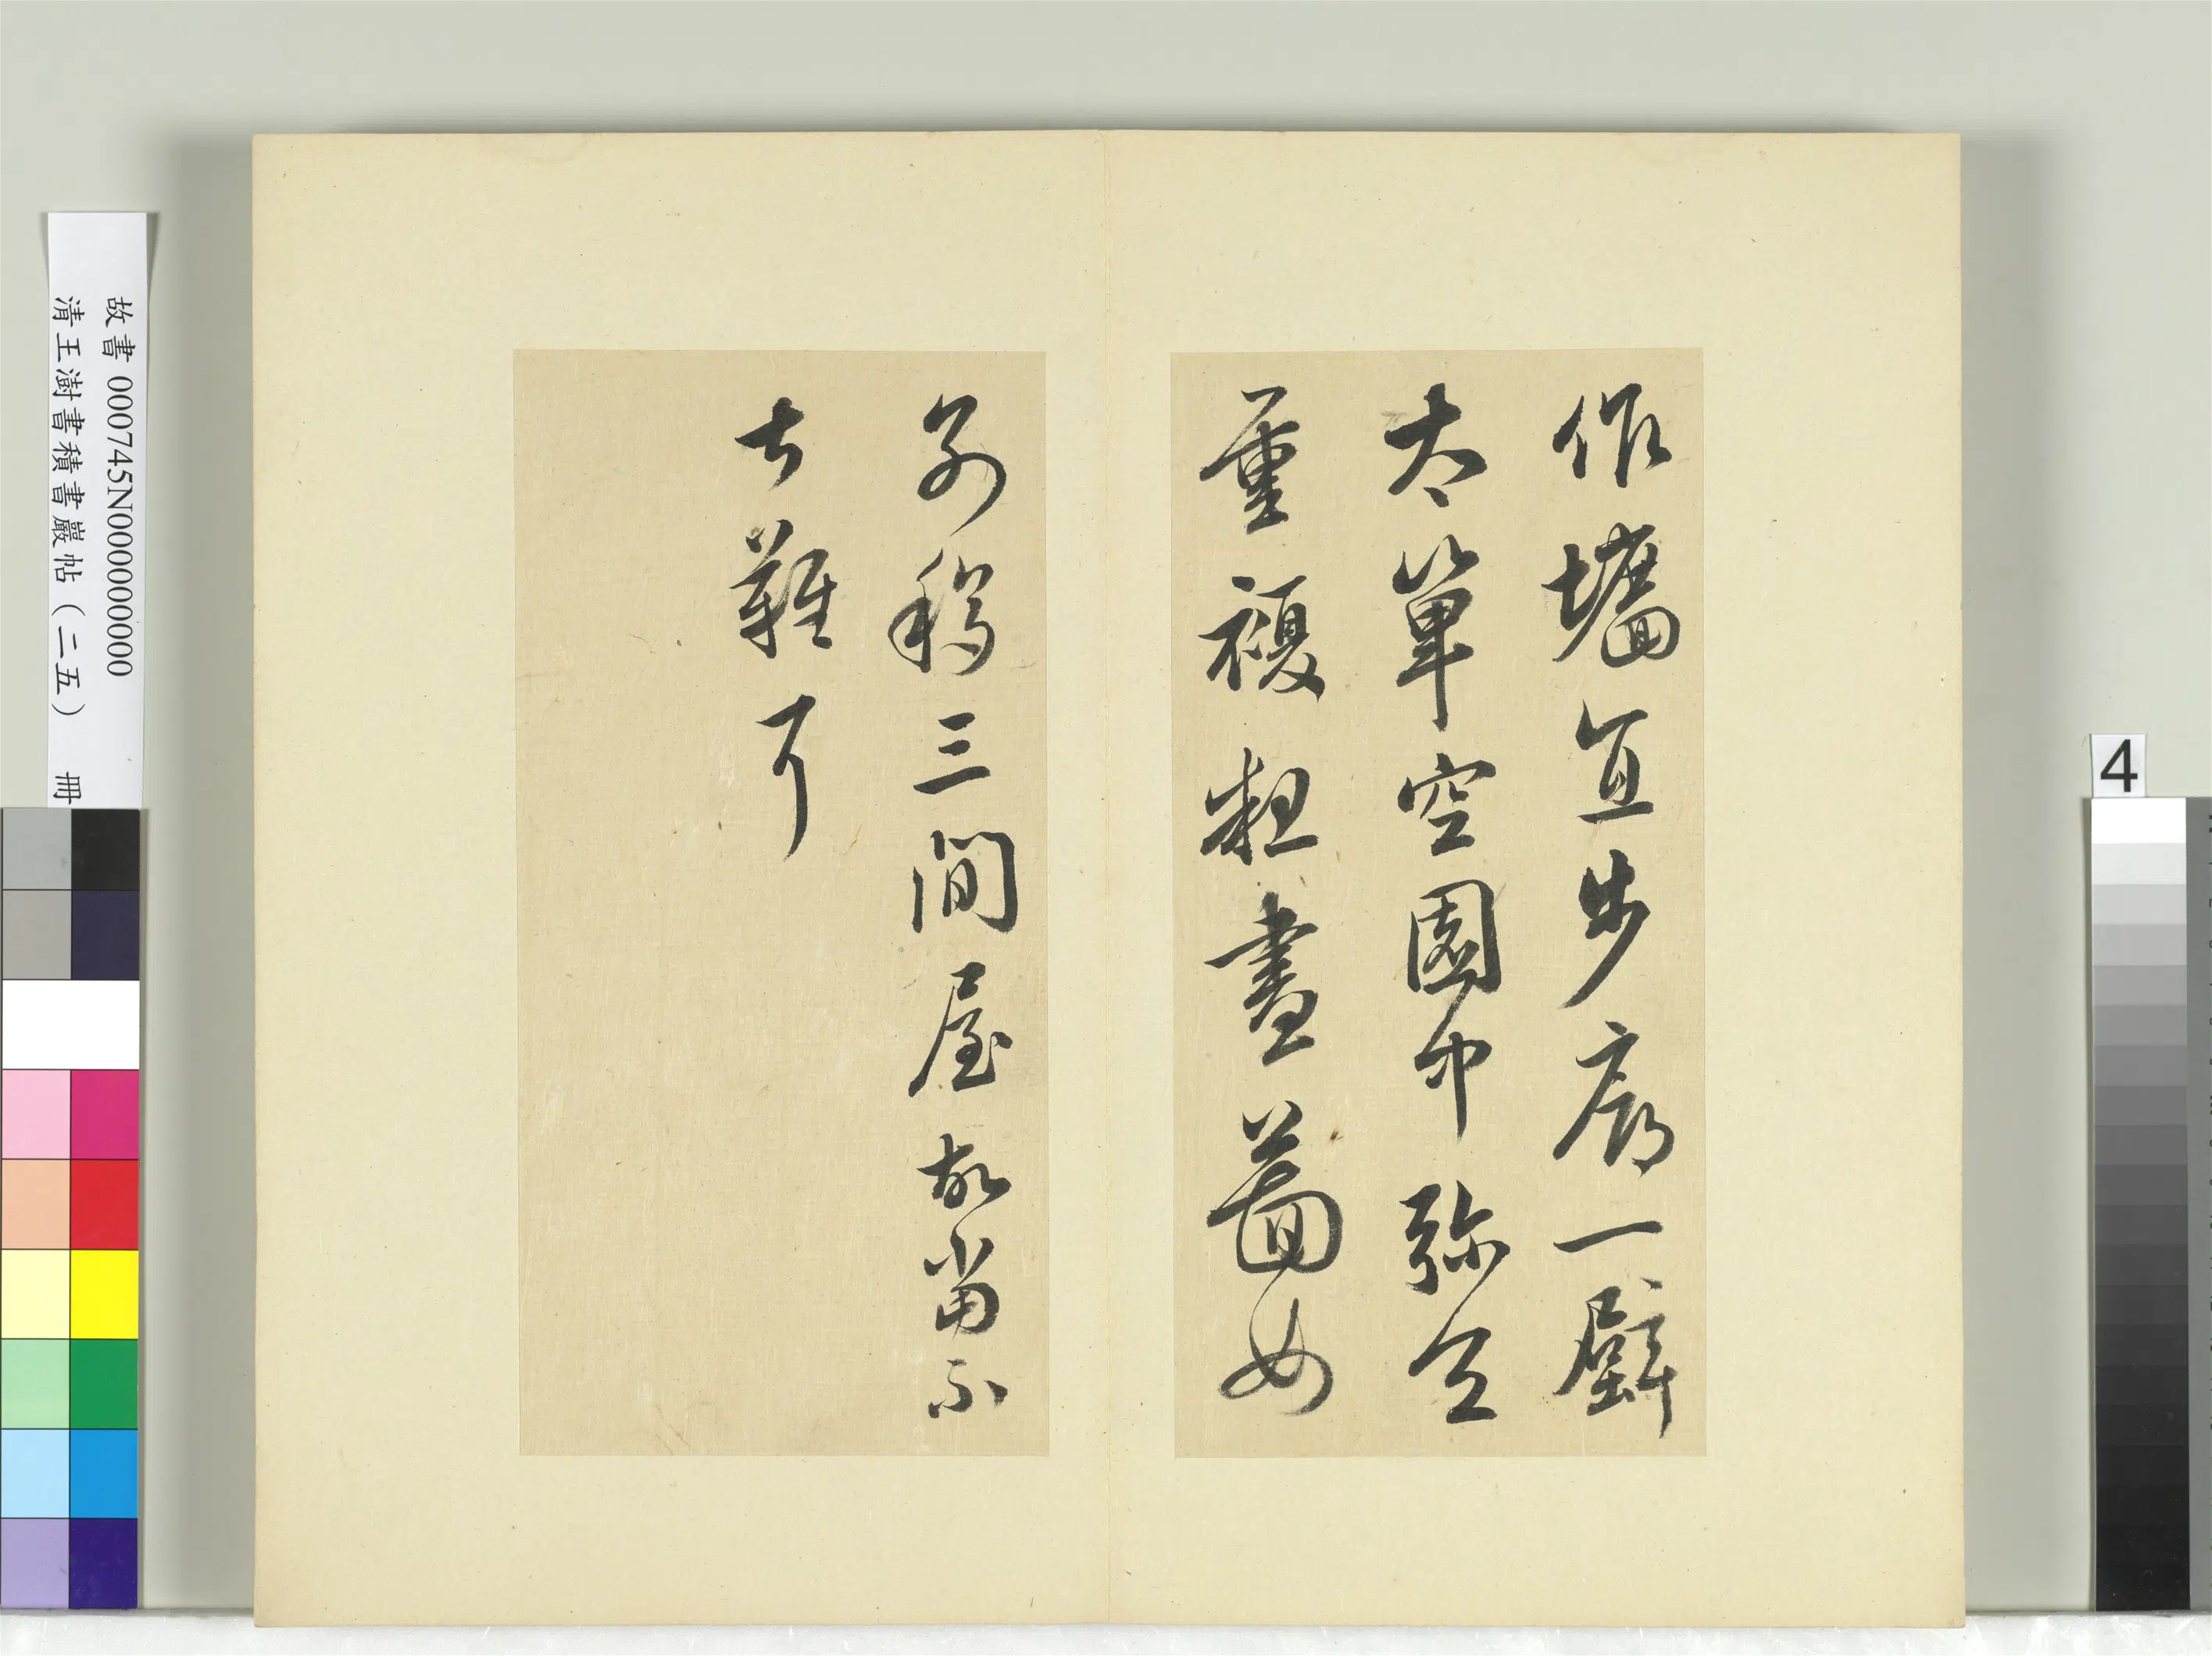 作墻宜步廊一壁
太單空園中弥令
重複粗畫啚如
別移三間屋故當不
甚難耳
故書 000745N000000000
清王澍書積書巖帖（二五） 冊
4